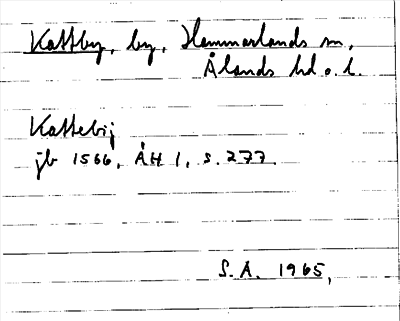 Kattby, by, Hammarlands sn,
Ålands hd o. l.
Kattebij
jb 1566, ÅH 1, s. 277.
S. A. 1965,